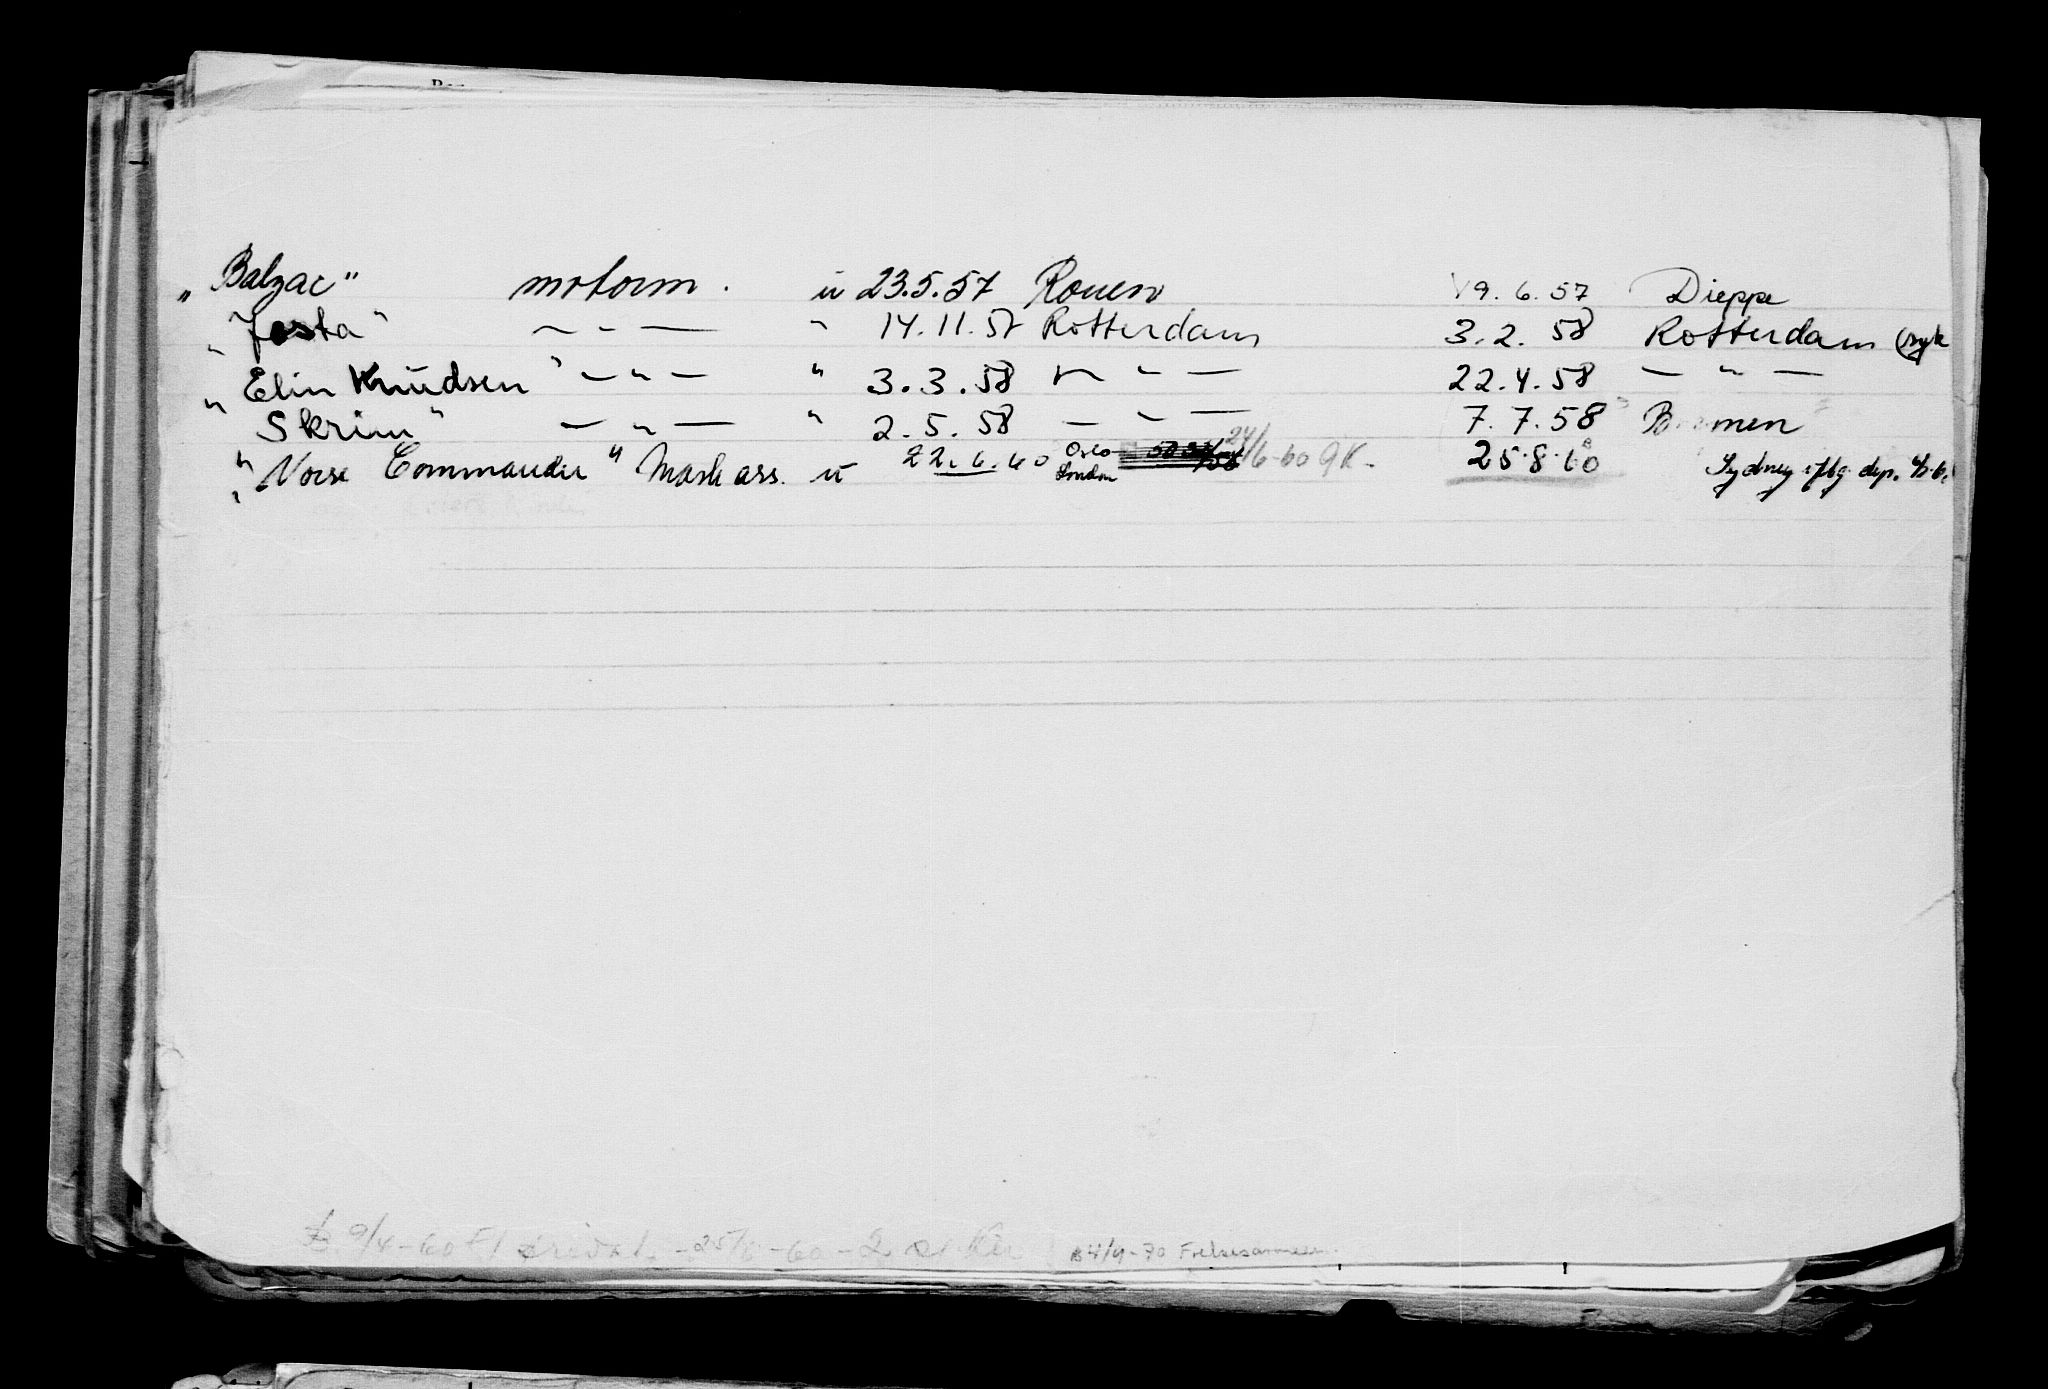 „Balzac" motorm. u 23.5.57 Rouen 19.6.57 Dieppe
„Josta" — " — " 14.11.57 Rotterdam 3.2.58 Rotterdam (syk
„Elin Knudsen" — " — " 3.3.58 — " — 22.4.58 — " —
„Skrim" — " — " 2.5.58 — " — 7.7.58 Bremen
„Norse Commander" Mask ass. u 22.6.60 Oslo London 24/6-60 GK. 25.8.60 Sydney flg. dep.
B 4/9-70 Frelsesarmeen.